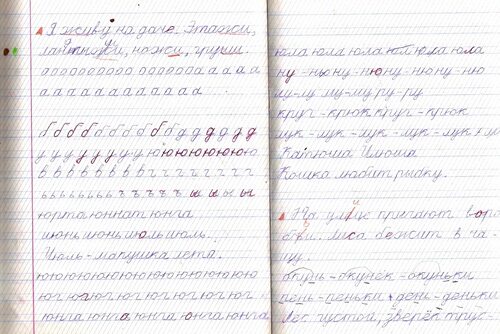 Я живу на даче. Этажи,
ландыши, ножи, груши.
а а о о о о о о о о о о о о о а а а а а
а а а а а а а а а а а а а а
б б б б б б б б б б б у д д д д д
у у у у у у у у ю ю ю ю ю ю ю ю
ь ь ь ь ь ь ь ь ъ ъ ъ ъ ы ы ы ы
юрта юннат юнга
июнь июнь июль июль.
Июль - макушка лета.
ююююююююююююююююю
юг юг юг юг юг юг юг юг юг
юнга юнга юнга юнга юнга юнга
юла юла юла юла юла юла
ну - ню ну - ню ну - ню ну - ню
му-му му-му ру-ру
круг - крюк круг - крюк
лук - люк - лук - люк - лук
Катюша Илюша
Кошка любит рыбку.
На улице прыгают воро
бьи. Лиса бежит в ча-
щу.
окунь - окунёк - окуньки
пень - пеньки день - деньки
Лес густой, зверёк трус-